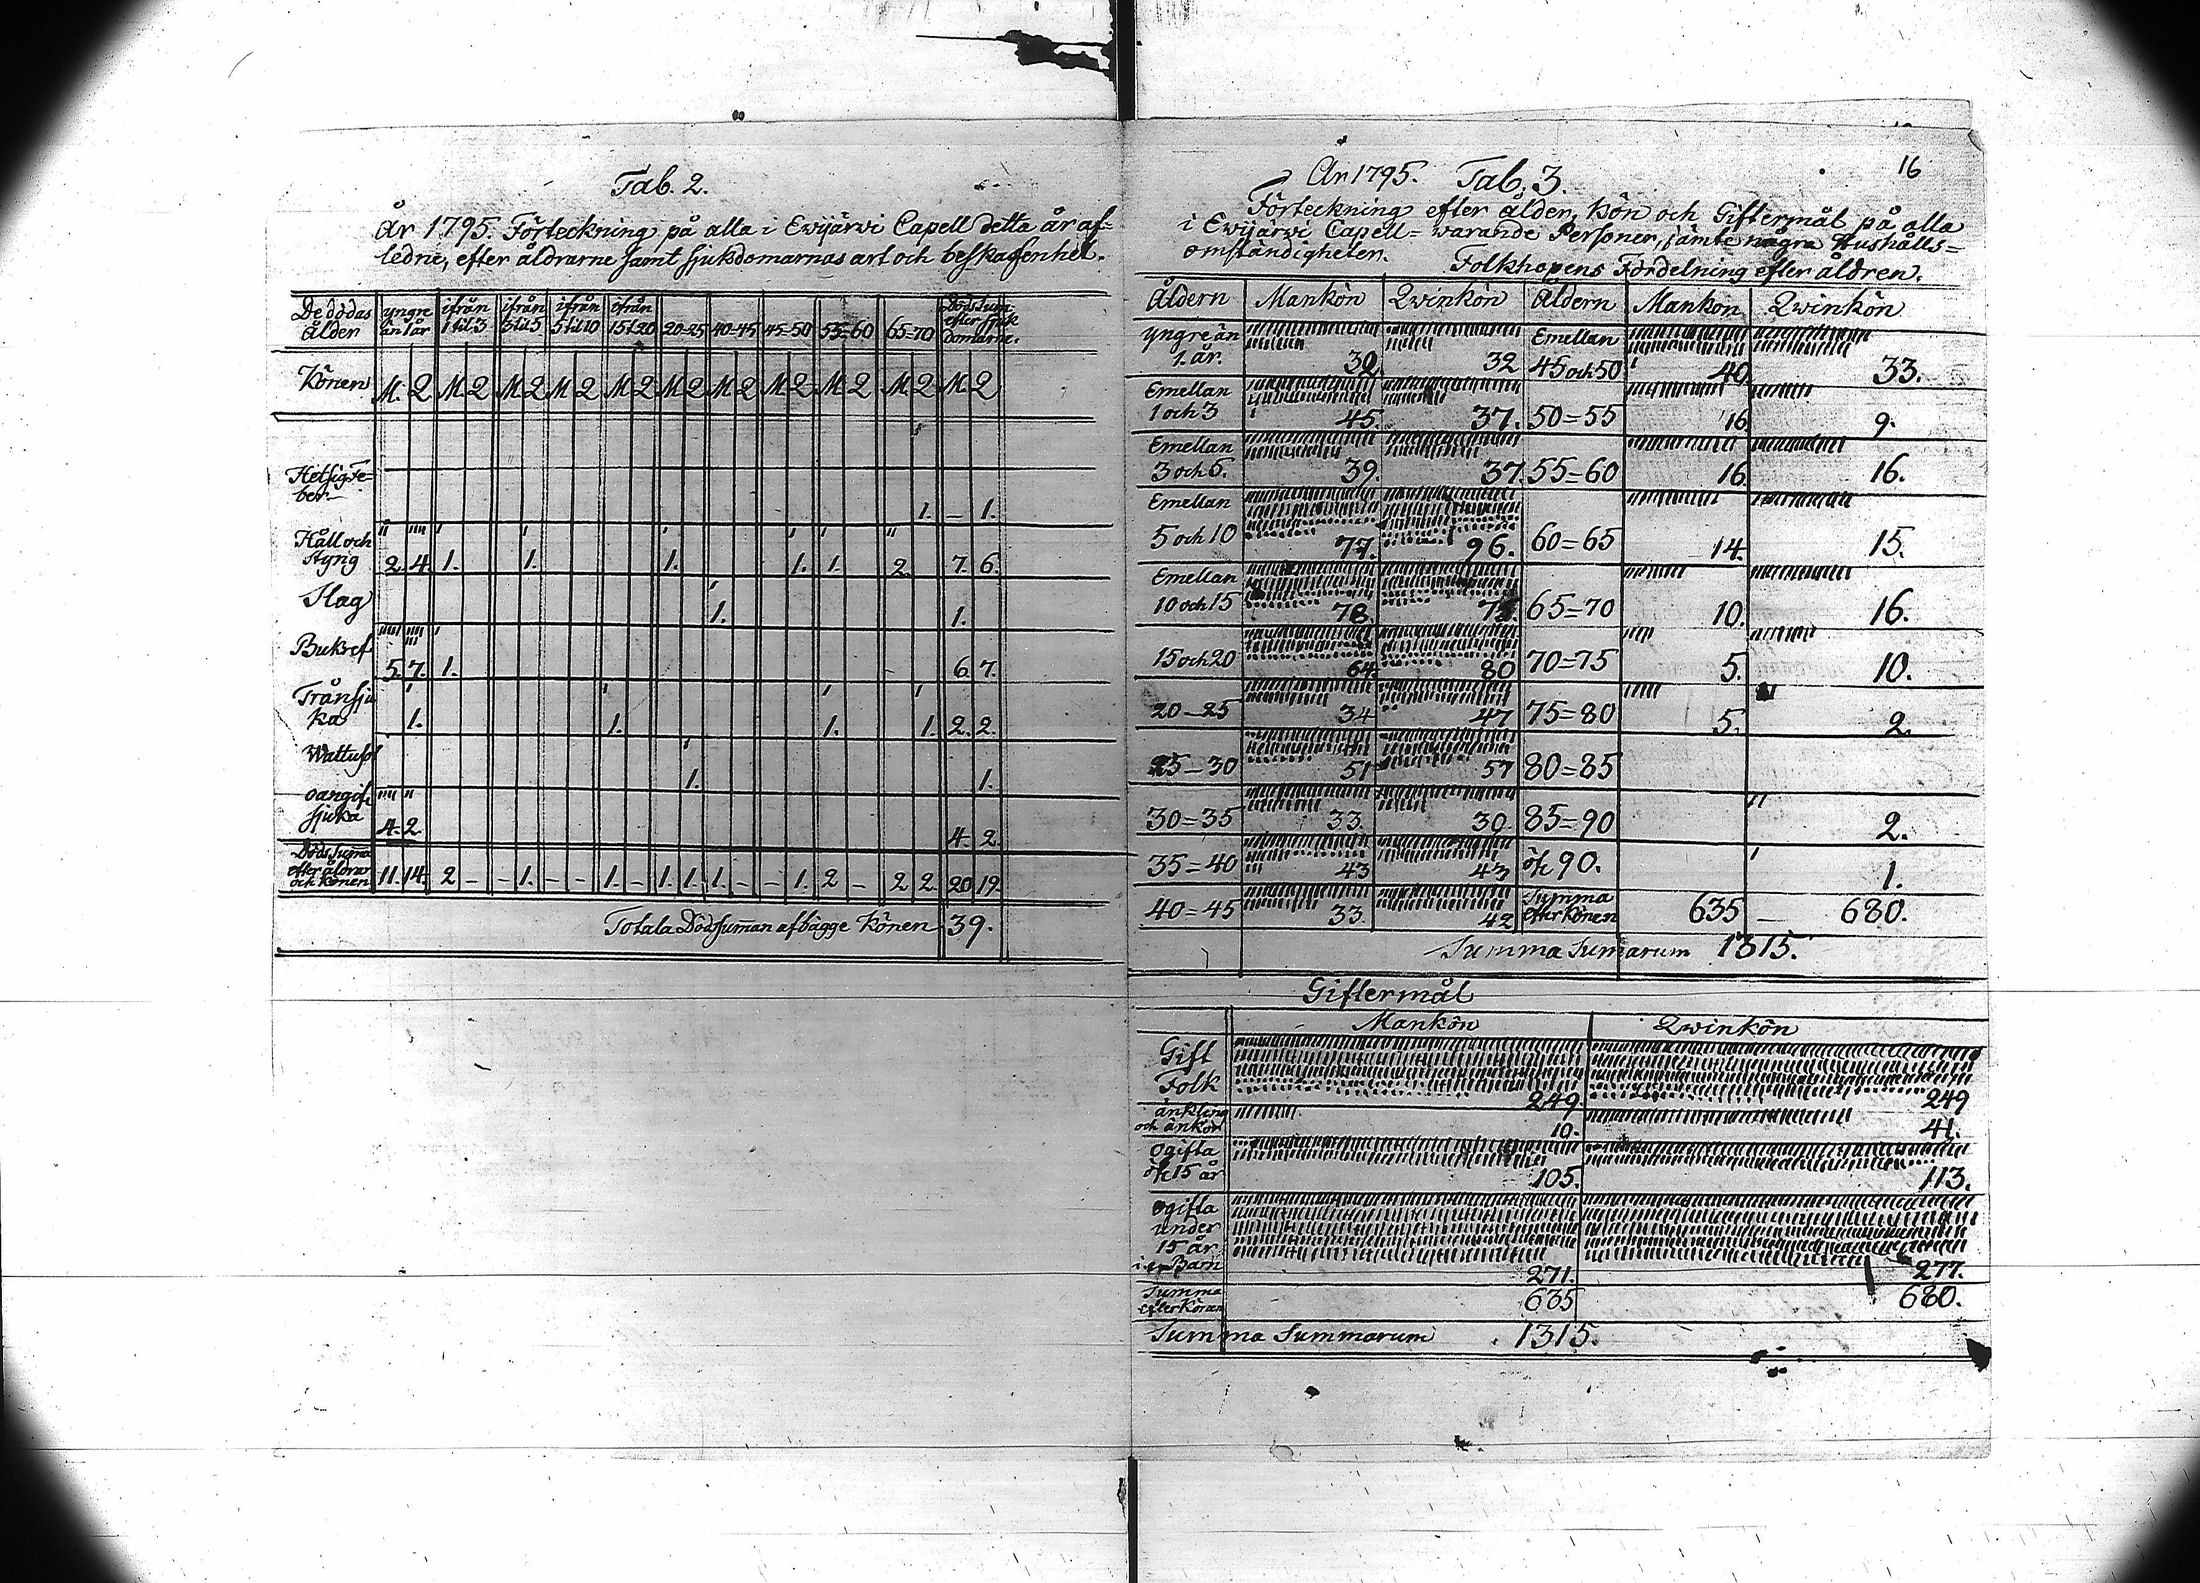 Tab. 2.
År 1795. Förteckning på alla i Ewijärwi Capell detta år af=
ledne, efter åldrarne samt sjukdomarnas art och beskaffenhet.
De dödas ålder yngre än 1 år ifrån 1 til 3 ifrån 3 til 5 ifrån 5 til 10 ifrån 15 t 20 20=25 40=45 45=50 55=60 65=70 Dödssum. efter sjuk domarne.
Könen M. Q M. Q M. Q M Q M. Q M Q M Q M Q M. Q M. Q M. Q
Hetsig Fe=
ber 1. – 1.
Håll och
styng 2. 4. 1. 1. 1. 1. 1. 2. 7. 6.
Slag 1. 1.
Bukref 5. 7. 1. 6. 7.
Trånsju
ka 1. 1. 1. 1. 2. 2.
Wattusot 1. 1.
oangif.
sjuka 4. 2. 4. 2.
Döds Suma
efter åldrar
och Könen 11. 14. 2 – – 1. – – 1. – 1. 1. 1. – – 1. 2 – 2 2. 20 19.
Totala Dödssuman af bägge Könen 39.
16
År 1795. Tab. 3.
Förteckning efter ålder, kön och Giftermål på alla
i Ewijärwi Capell= warande Personer, jämte några Hushålls=
omständigheter. Folkhopens Fördelning efter åldren.
Åldern Mankön Qwinkön Åldern Mankön Qwinkön
yngre än
1. år. 32 32 Emellan
45 och 50 40. 33.
Emellan
1 och 3 45. 37. 50=55 16 9.
Emellan
3 och 5. 39. 37. 55=60 16 16.
Emellan
5 och 10 77. 96. 60=65 14. 15.
Emellan
10 och 15 78. 65=70 10. 16.
15 och 20 64. 80 70=75 5. 10.
20–25 34 47 75=80 5. 2.
25–30 51 57 80=85
30=35 33. 30. 85=90 2.
35=40 43 43 öf. 90. 1.
40=45 33. 42 Summa
efter Könen 635 — 680.
Summa Sumarum 1315.
Giftermål
Mankön Qwinkön
Gift
Folk 249. 249
änkling
och änkor 10. 41.
ogifta
öf. 15 år 105. 113.
ogifta
under
15 år
i. e. Barn 271. 277.
Summa
efter Könen 635 680.
Summa Summarum 1315.